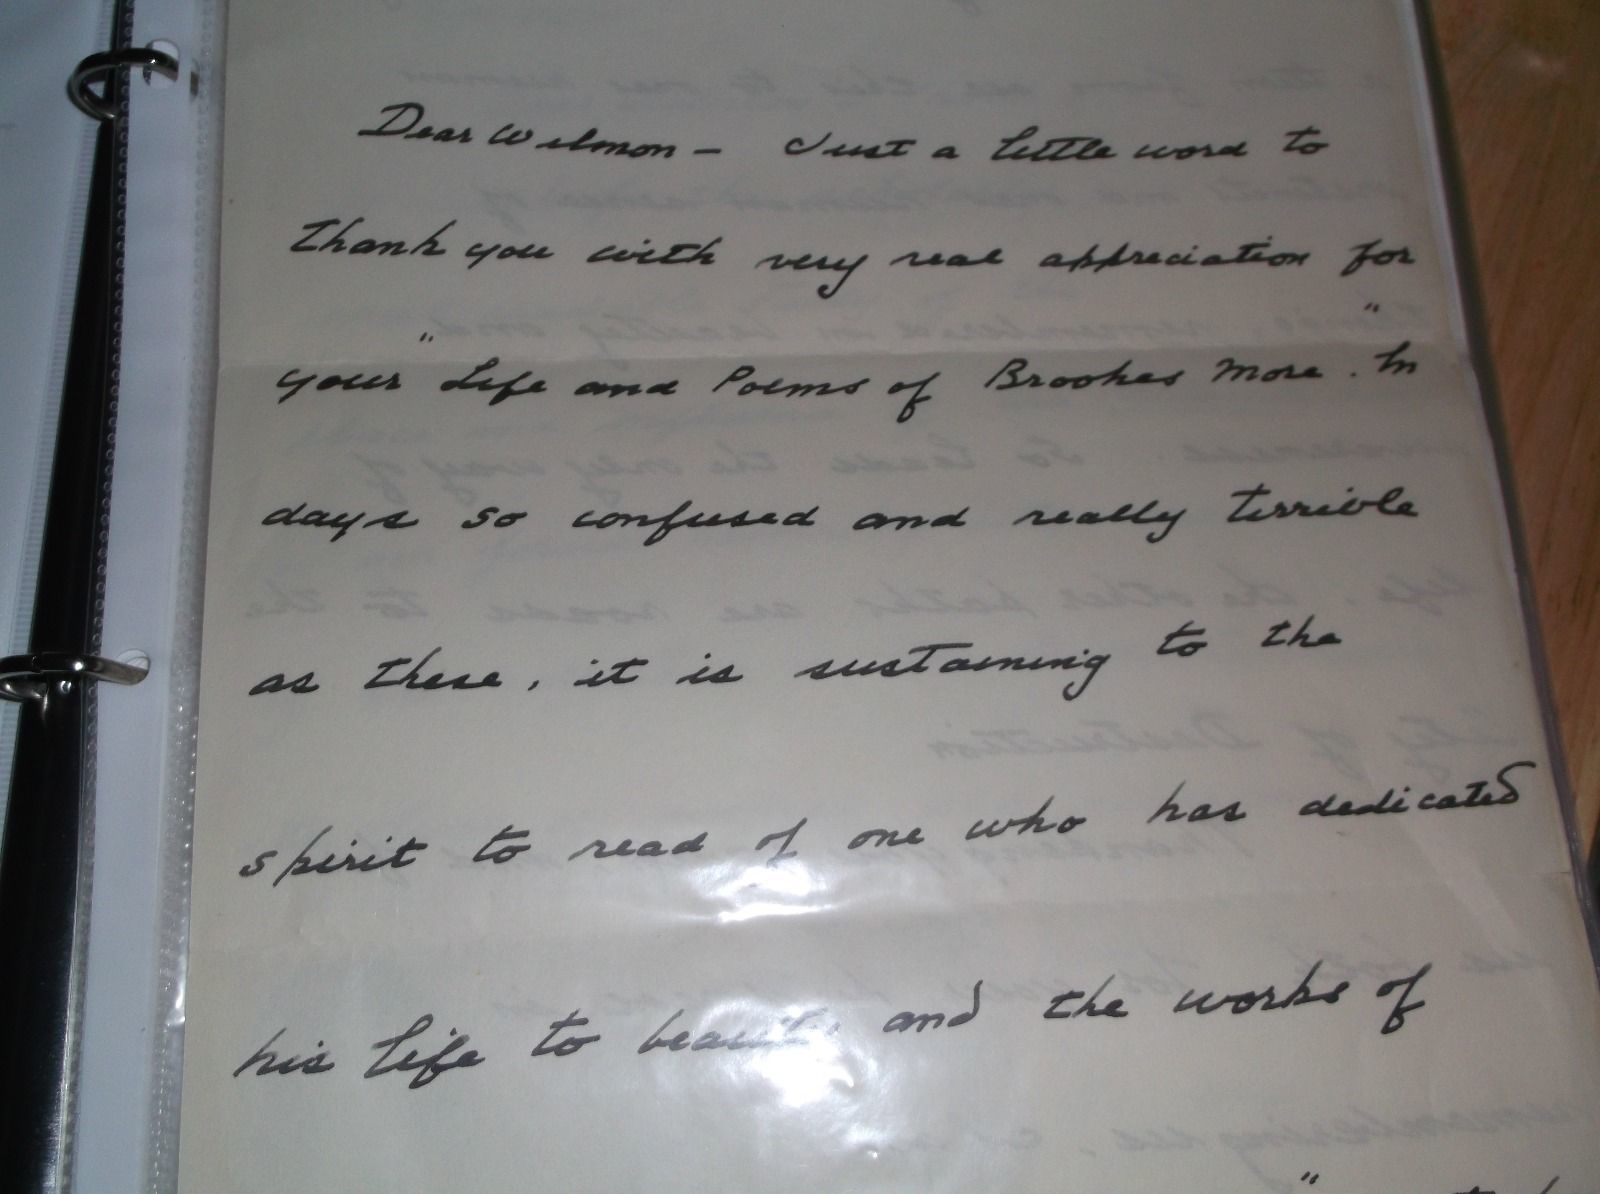 Dear Wilmon – Just a little word to
thank you with very real appreciation for
your "Life and Poems of Brookes More". In
days so confused and really terrible
as these, it is sustaining to the
spirit to read of one who has dedicated
his life to beauty and the works of